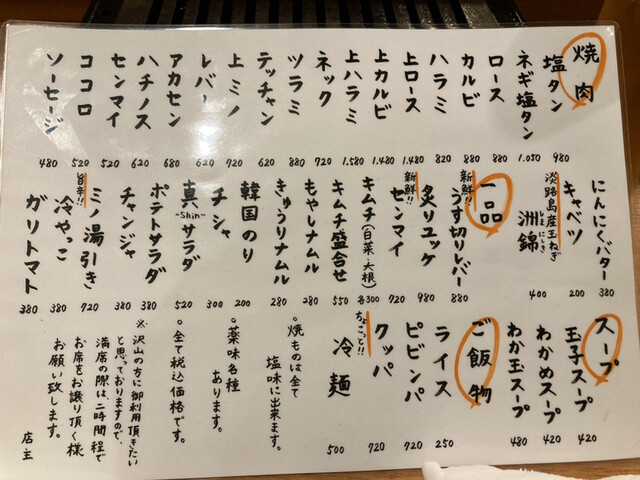 焼肉
塩タン 980
ネギ塩タン 1.050
ロース 880
カルビ 880
ハラミ 820
上ロース 1.480
上カルビ 1.480
上ハラミ 1.580
ネック 720
ツラミ 880
テッチャン 620
上ミノ 720
レバー 620
アカセン 680
ハチノス 620
センマイ 520
ココロ 520
ソーセージ 480
にんにくバター 380
キャベツ 200
淡路島産玉ねぎ
洲錦 400
一品
新鮮!!
うす切りレバー 880
炙りユッケ 980
新鮮!!
センマイ 720
キムチ(白菜・大根) 各300
キムチ盛合せ 550
もやしナムル 280
きゅうりナムル 280
韓国のり 200
チシャ 300
真サラダ 520
~Shin~
ポテトサラダ 380
チャンジャ 380
旨辛!!
ミノ湯引き 720
冷やっこ 380
ガリトマト 380
スープ
玉子スープ 420
わかめスープ 420
わか玉スープ 480
ご飯物
ライス 250
ビビンバ 720
クッパ 720
ちょこっと!!
冷麺 500
。焼ものは全て
塩味に出来ます。
。薬味各種
あります。
。全て税込価格です。
※沢山の方に御利用頂きたい
と思っておりますので、
満席の際は、二時間程で
お席をお譲り頂く様
お願い致します。
店主